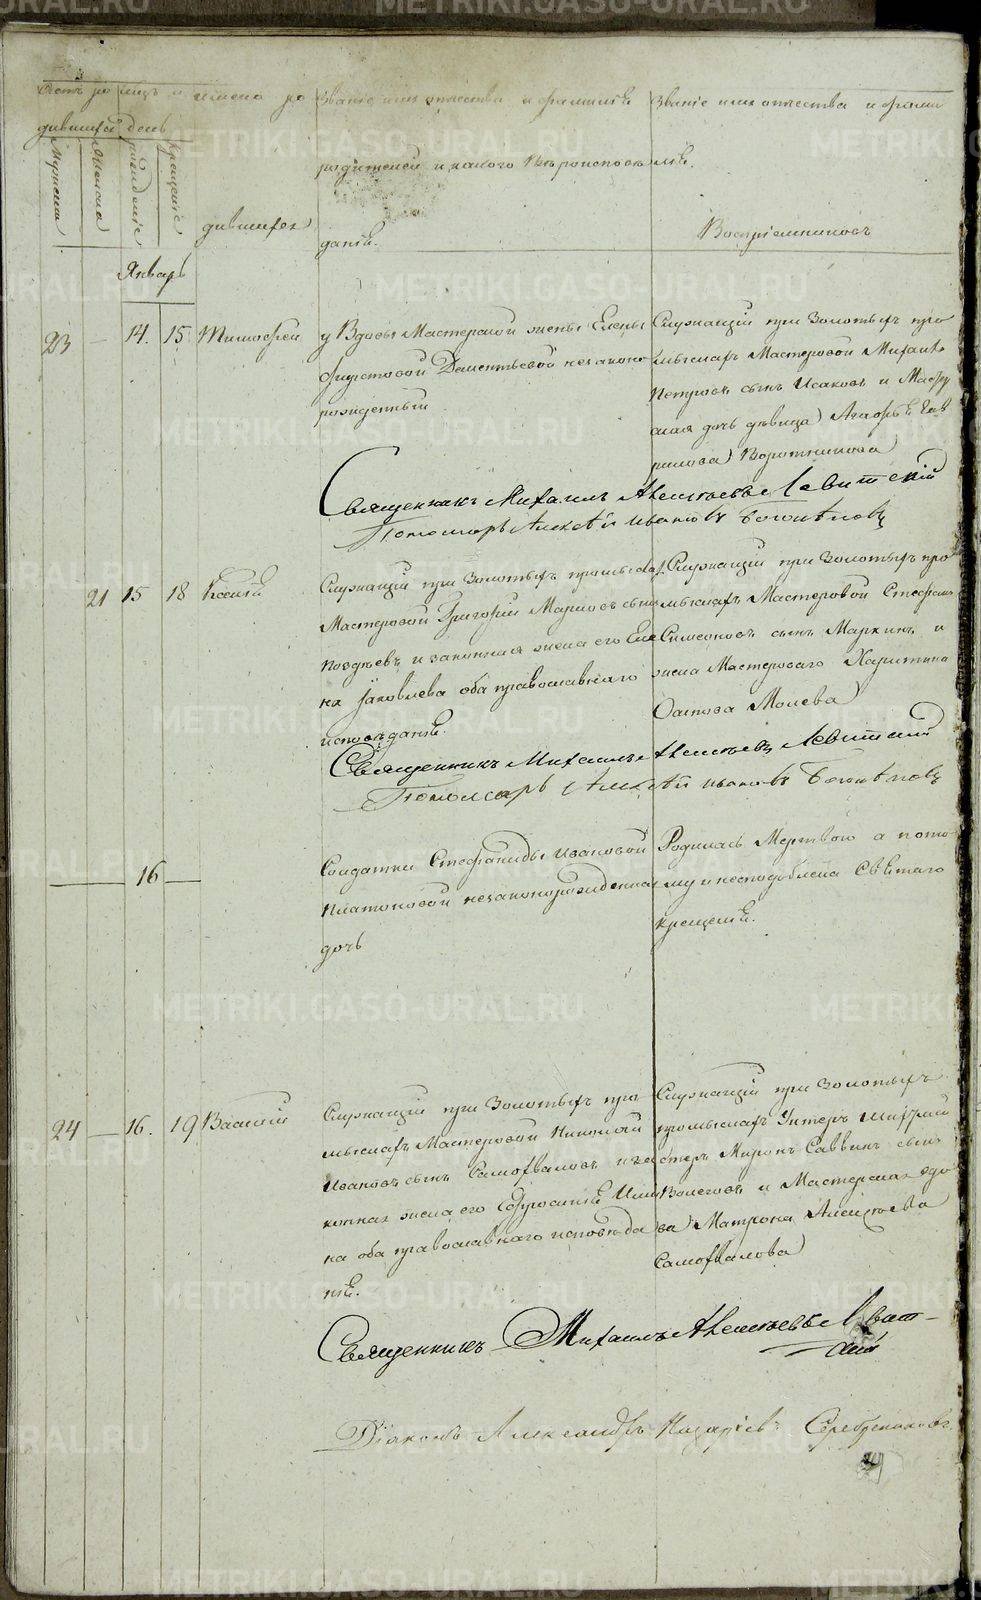 METRIKI.GASO-URAL.RU
Счетъ ро
дившихся
мѣсяцъ и
день
Имена ро
дившихся
Званіе имя отчество и фамилія
родителей и какого вѣроисповѣ
данія.
Званіе имя отчество и фами
лія.
Воспріемниковъ
Мужеска
Женска
рожденіе
крещеніе
Январь
23 — 14. 15 Тимофей
у Вдовы Мастерской жены Елены
Дементьевой незаконо
рожденный
Служащій при Золотыхъ про
мыслахъ Мастеровой Михаилъ
Петровъ сынъ Исаковъ и Масте
ская дочь девица Агафья Гав
рилова Воротникова
Священникъ Михаилъ Алексѣевъ Левитскій
Пономарь Алексѣй Ивановъ
21 15 18 Ксенія
Служащій при Золотыхъ промыслах
Мастеровой Григорій Марковъ сынъ
Поздѣевъ и законная жена его Еле
на Яковлева оба православнаго
исповѣданія.
Служащій при Золотыхъ про
мыслахъ Мастеровой Стефанъ
Симеоновъ сынъ Маркинъ и
жена Мастероваго Харитина
Осипова Молева
Священникъ Михаилъ Алексѣевъ Левитскій
Пономарь Алексѣй Ивановъ
— 16 —
Солдатки Стефаниды Ивановой
Платоновой незаконорожденна
дочь
Родилась Мертвою а пото
му и несподоблена Святаго
крещенія.
24 — 16. 19 Василій
Служащій при Золотыхъ про
мыслахъ Мастеровой Николай
Ивановъ сынъ Самохваловъ и за
конная жена его Ефросинія Ильи
на оба православнаго исповѣда
нія.
Служащій при Золотыхъ
промыслахъ Унтеръ Шихтмей
стеръ Миронъ Саввинъ сынъ
Волеговъ и Мастерская вдо
ва Матрона Алексѣева
Самохвалова
Священникъ Михаилъ Алексѣевъ Левит-
скій
Діаконъ Александръ Назаріевъ Серебренниковъ